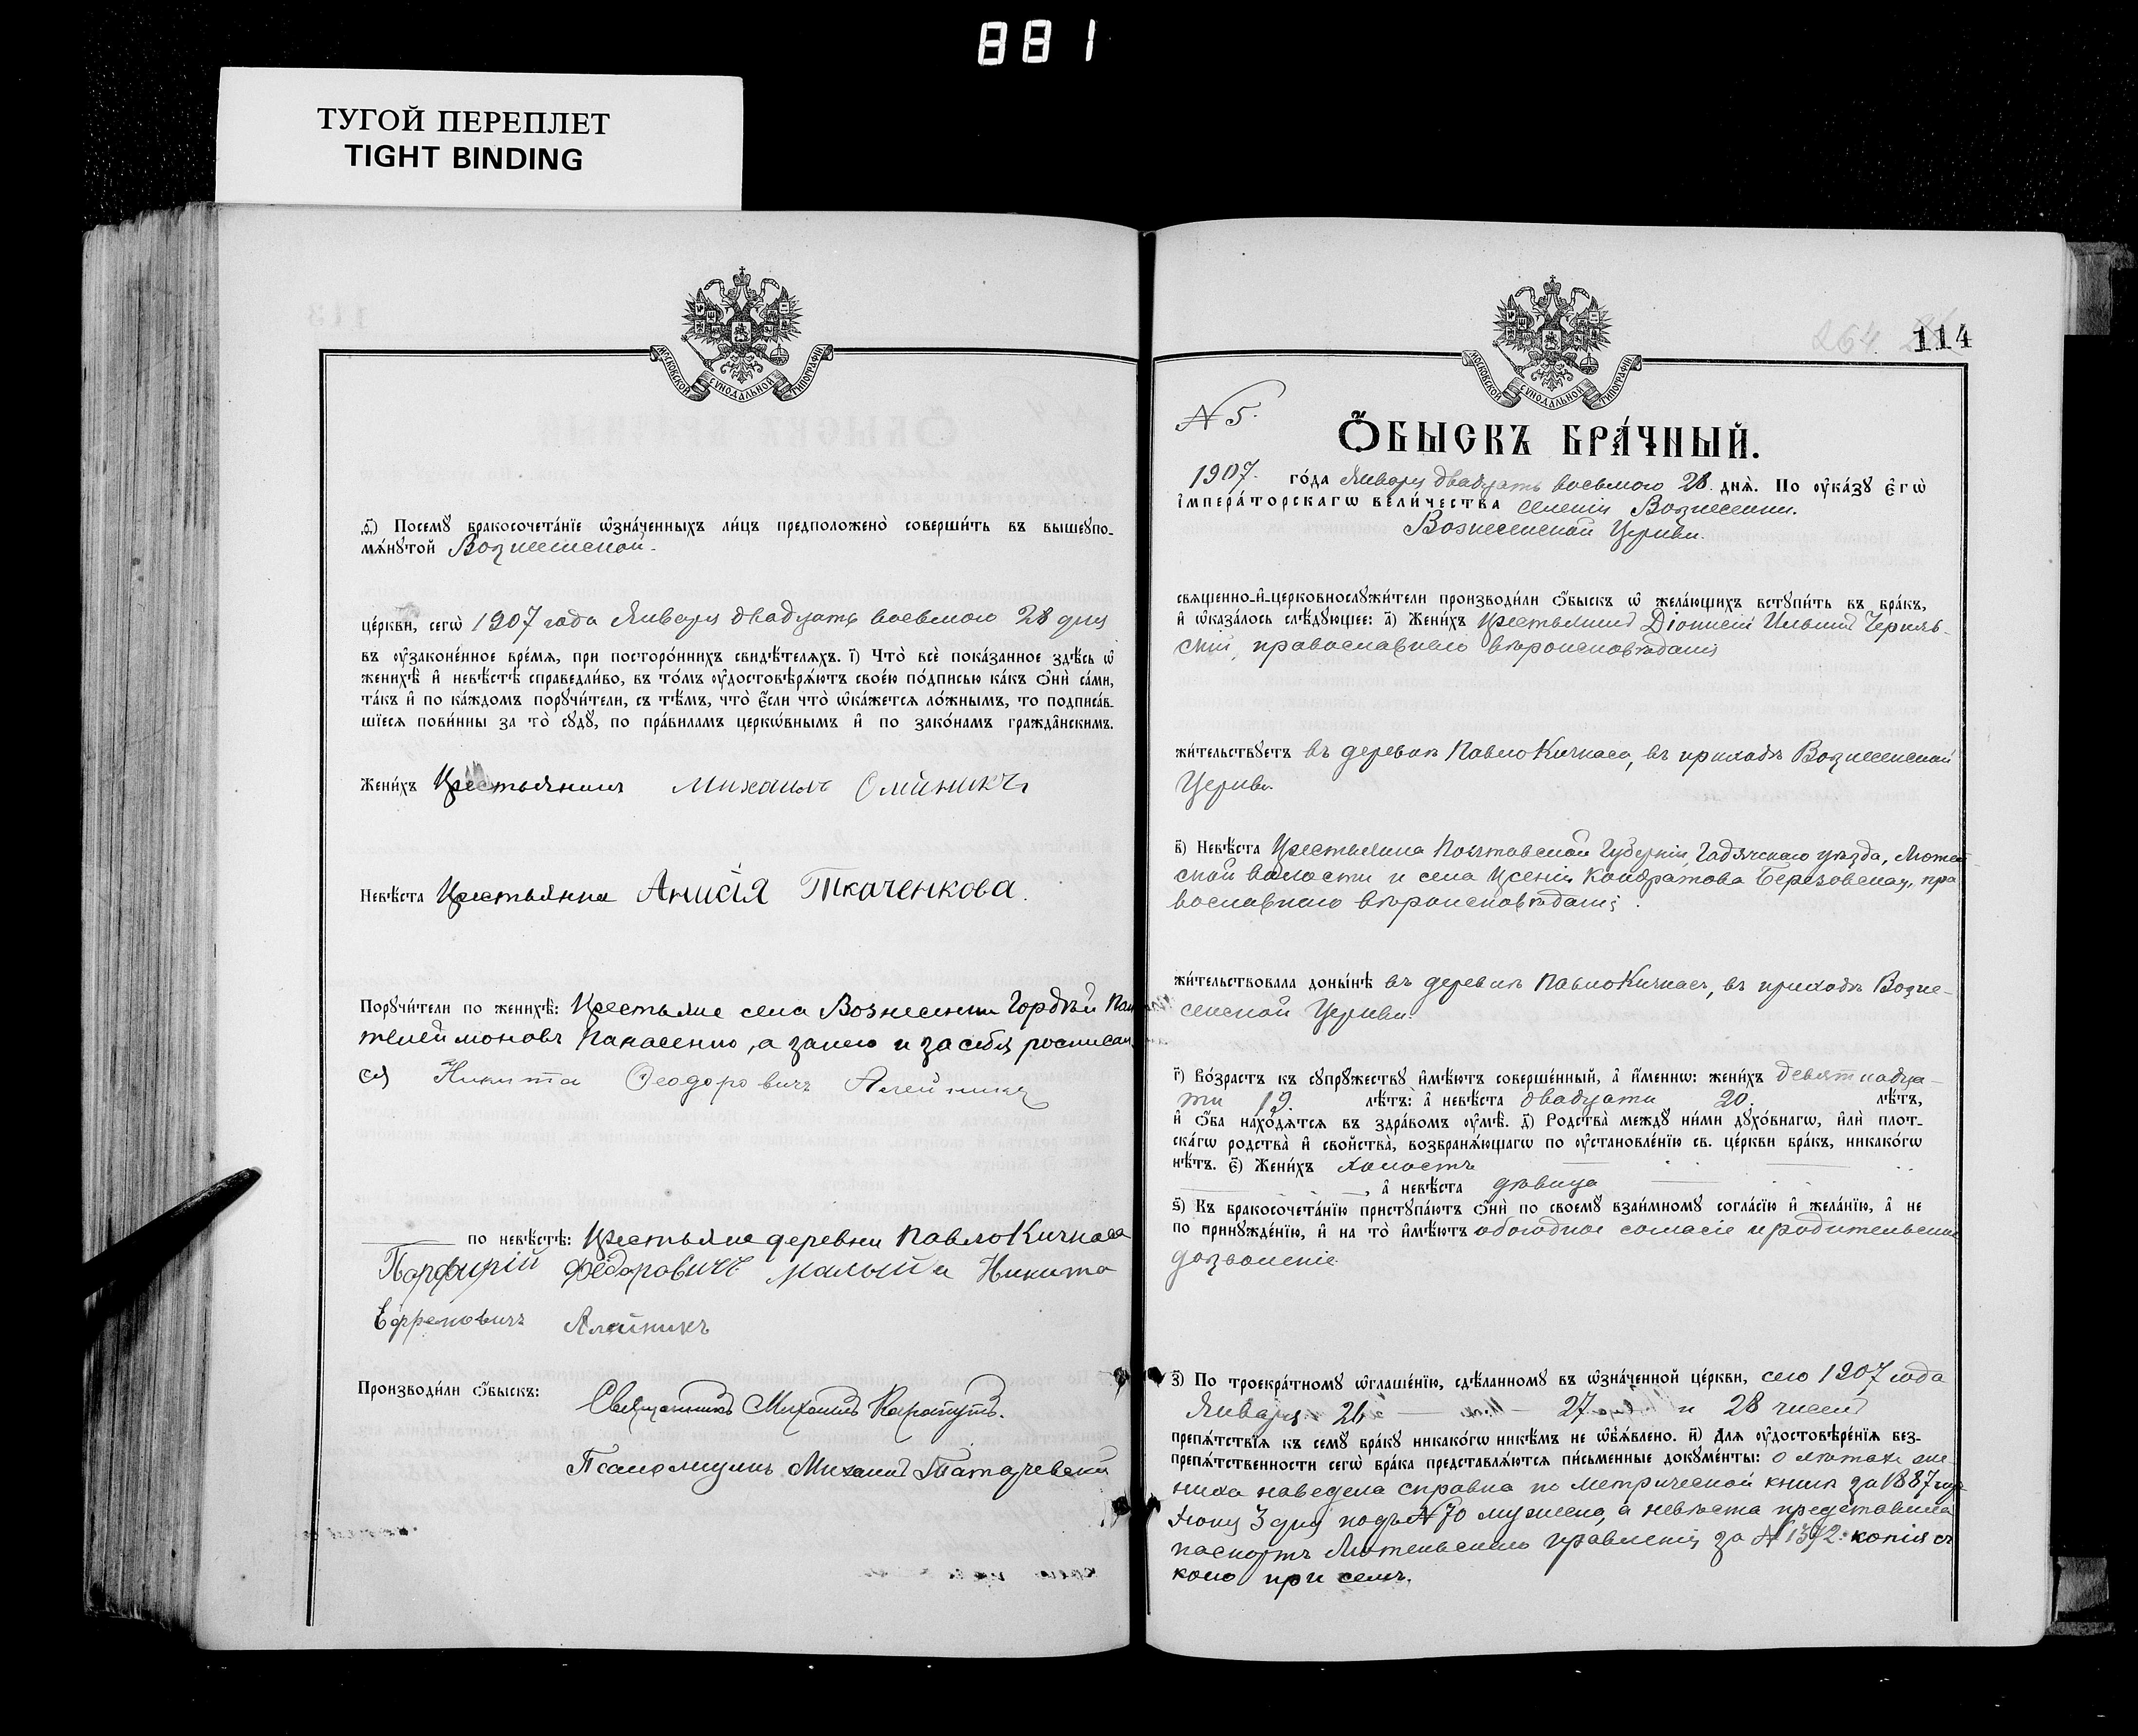 881
ТУГОЙ ПЕРЕПЛЕТ
TIGHT BINDING
МОСКОВСКОЙ СѴНОДАЛЬНОЙ ТИПОГРАФІИ
ѳ҃) Посемꙋ бракосочета́нїе ѡ҆зна́ченныхъ ли́цъ предположено̀ соверши́ть въ вышеꙋпо-
мѧ́нꙋтой Вознесенской
це́ркви, сегѡ̀ 1907 года Января двадцать восьмого 28 дня
въ ᲂу҆законе́нное вре́мѧ, при посторо́ннихъ свидѣ́телѧхъ. і҃) Что̀ всѐ пока́занное здѣ́сь ѡ҆
женихѣ̀ и҆ невѣ́стѣ справедли́во, въ то́мъ ᲂу҆достовѣрѧ́ютъ свое́ю по́дписью ка́къ ѻ҆нѝ са́ми,
та́къ и҆ по ка́ждомъ порꙋчи́тели, съ тѣ́мъ, что̀ є҆́сли что̀ ѡ҆ка́жетсѧ ло́жнымъ, то подписа́в-
шїесѧ пови́нны за то̀ сꙋдꙋ̀, по пра́виламъ церко́внымъ и҆ по зако́намъ гражда́нскимъ.
Жени́хъ Крестьянинъ Михаилъ Олейникъ
Невѣ́ста Крестьянка Анисія Ткаченкова.
Порꙋчи́тели по женихѣ̀: Крестьяне села Вознесенки Гордѣй Пан
телеймоновъ Панасенко, а за него и за себя росписал
ся Никита Ѳеодоровичъ Алейникъ
по невѣ́стѣ: Крестьяне деревни Павло Кичкаса
Парфирій Федоровичъ Малый и Никита
Ефремовичъ Алейникъ
Производи́ли ѻ҆́быскъ: Священникъ Михаилъ Карапутъ.
Псаломщикъ Михаилъ
264
114
МОСКОВСКОЙ СѴНОДАЛЬНОЙ ТИПОГРАФІИ
N 5.
Ѻ҆́БЫСКЪ БРА́ЧНЫЙ.
1907. го́да Января двадцать восьмого 28. днѧ̀. По ᲂу҆ка́зꙋ є҆гѡ̀
і҆мпера́торскагѡ вели́чества селенія Вознесенки.
Вознесенской Церкви.
свѧщенно-и҆-церковнослꙋжи́тели производи́ли ѻ҆́быскъ ѡ҆ жела́ющихъ встꙋпи́ть въ бра́къ,
и҆ ѡ҆каза́лось слѣ́дꙋющее: а҃) Жени́хъ Крестьянинъ Діонисій Ильинъ Черняв-
скій, православнаго вѣроисповѣданія
жи́тельствꙋетъ въ деревнѣ Павло Кичкасѣ, въ приходѣ Вознесенской
Церкви.
в҃) Невѣ́ста Крестьянка Полтавской Губерніи, Гадячскаго уѣзда, Лютен-
ской волости и села Ксенія Кондратова Березовская, пра
вославнаго вѣроисповѣданія.
жи́тельствовала доны́нѣ въ деревнѣ Павло Кичкасѣ, въ приходѣ Возне-
сенской Церкви.
г҃) Во́зрастъ къ сꙋпрꙋ́жествꙋ и҆мѣ́ютъ соверше́нный, а҆ и҆́менно: жени́хъ девятнадца-
ти 19. лѣ́тъ: а҆ невѣ́ста двадцати 20. лѣ́тъ,
и҆ ѻ҆́ба нахо́дѧтсѧ въ здра́вомъ ᲂу҆мѣ̀. д҃) Родства̀ междꙋ ни́ми дꙋхо́внагѡ, и҆лѝ плот-
ска́гѡ родства̀ и҆ сво́йства̀, возбранѧ́ющагѡ по ᲂу҆становле́нїю св. це́ркви бра́къ, никако́гѡ
нѣ́тъ. є҃) Жени́хъ холостъ
, а҆ невѣ́ста дѣвица
ѕ҃) Къ бракосочета́нїю пристꙋпа́ютъ ѻ҆нѝ по своемꙋ̀ взаи́мномꙋ согла́сїю и҆ жела́нїю, а҆ не
по принꙋжде́нїю, и҆ на то̀ и҆мѣ́ютъ обоюдное согласіе и родительское
дозволеніе.
з҃) По троекра́тномꙋ ѡ҆глаше́нїю, сдѣ́ланномꙋ въ ѡ҆зна́ченной це́ркви, сего 1907 года
Января 26 — 27 и 28 чиселъ
препѧ́тствїѧ къ семꙋ̀ бра́кꙋ никако́гѡ никѣ́мъ не ѡ҆б̾ѧ́влено. и҃) Длѧ ᲂу҆достовѣре́нїѧ без-
препѧ́тственности сегѡ̀ бра́ка представлѧ́ютсѧ пи́сьменные докꙋме́нты: о лѣтахъ же-
ниха наведена справка по метрической книгѣ за 1887 годъ
Іюня 3 дня подъ N 70 мужеска, а невѣста представила
паспортъ Лютеньскаго правленія за N 1372. копія съ
кого при семъ.